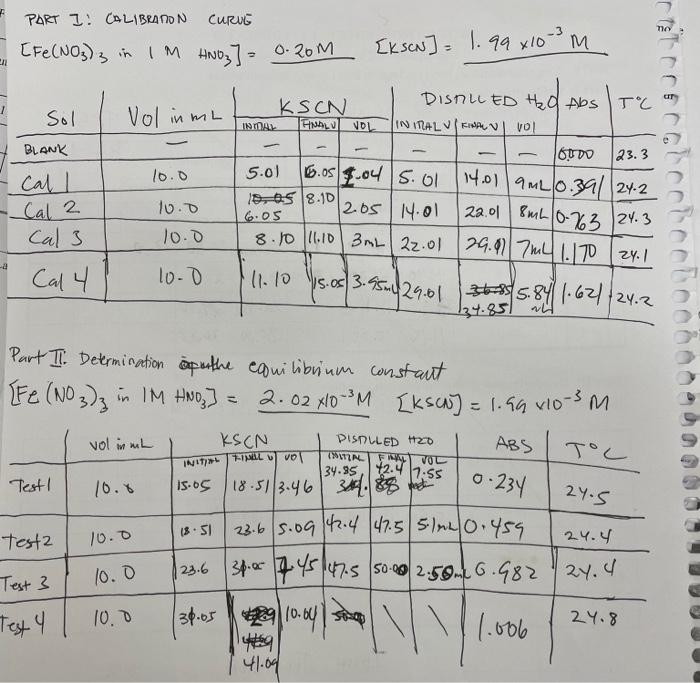 PART I: CALIBRATION CURVE
[Fe(NO3)3 in 1 M HNO3] = 0.20M [KSCN] = 1.99 x10⁻³ M
Sol Vol in mL KSCN DISTILLED H2O Abs T°C
INITIAL FINAL V VOL INITIAL V FINAL V VOl
BLANK — — — — — — — 0.000 23.3
Cal 1 10.0 5.01 6.05 1.04 5.01 14.01 9mL 0.391 24.2
Cal 2 10.0 6.05 8.10 2.05 14.01 22.01 8mL 0.763 24.3
Cal 3 10.0 8.10 11.10 3mL 22.01 29.01 7mL 1.170 24.1
Cal 4 10.0 11.10 15.05 3.95mL 29.01 34.85 5.84 mL 1.621 24.2
Part II: Determination the equilibrium constant
[Fe(NO3)3 in 1M HNO3] = 2.02 x10⁻³M [KSCN] = 1.99 x10⁻³ M
vol in mL KSCN DISTILLED H2O ABS T°C
INITIAL FINAL V VOl INITIAL FINAL VOL
Test 1 10.0 15.05 18.51 3.46 34.85 42.4 7.55 0.234 24.5
Test 2 10.0 18.51 23.6 5.09 42.4 47.5 5.1mL 0.459 24.4
Test 3 10.0 23.6 7.45 47.5 50.00 2.50mL 0.982 24.4
Test 4 10.0 31.05 41.09 10.04 \ \ 1.006 24.8